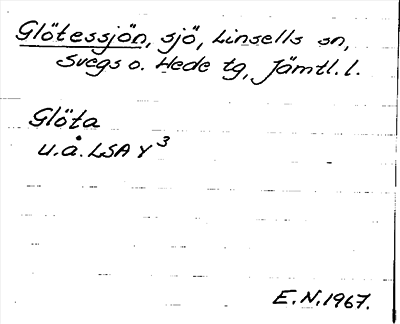 Glötessjön, sjö, Linsells sn,
Svegs o. Hede tg, Jämtl. l.
Glöta
u.å. LSA Y³
E.N. 1967.